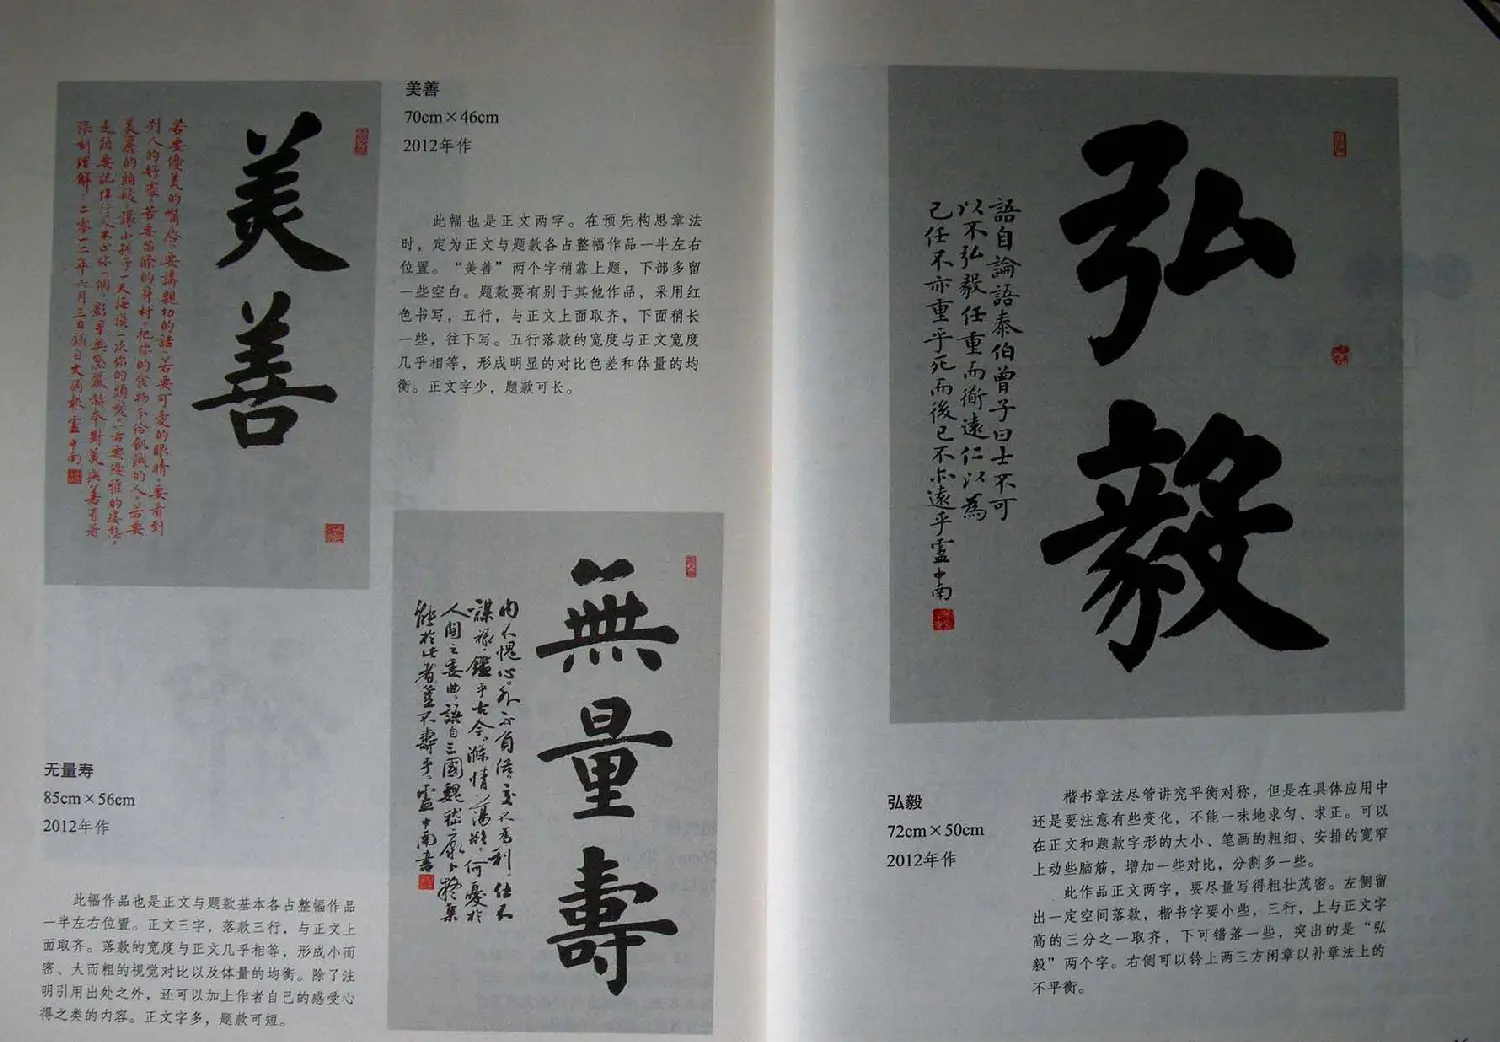 美善
70cm×46cm
2012年作
此幅也是正文两字。在预先构思章法
时，定为正文与题款各占整幅作品一半左右
位置。“美善”两个字稍靠上题，下部多留
一些空白。题款要有别于其他作品，采用红
色书写，五行，与正文上面取齐，下面稍长
一些，往下写。五行落款的宽度与正文宽度
几乎相等，形成明显的对比色差和体量的均
衡。正文字少，题款可长。
美善
若要優美的嘴唇，要講親切的話，若要可愛的眼睛，要看到
別人的好處，若要苗條的身材，把你的食物分給飢餓的人，若要
美麗的頭髮，讓小孩子一天撫摸一次你的頭髮，若要優雅的姿態，
無量壽
内不愧心，外不負俗，交不爲利，仕不
謀禄，鑑乎古今，滌情蕩欲，何憂於
人間之委曲，語自三國魏嵇康卜疑集
能於此者豈不壽乎，盧中南書
无量寿
85cm×56cm
2012年作
此幅作品也是正文与题款基本各占整幅作品
一半左右位置。正文三字，落款三行，与正文上
面取齐。落款的宽度与正文几乎相等，形成小而
密、大而粗的视觉对比以及体量的均衡。除了注
明引用出处之外，还可以加上作者自己的感受心
得之类的内容。正文字多，题款可短。
弘毅
語自論語泰伯曾子曰士不可
以不弘毅任重而衜遠仁以為
己任不亦重乎死而後已不亦遠乎盧中南
弘毅
72cm×50cm
2012年作
楷书章法尽管讲究平衡对称，但是在具体应用中
还是要注意有些变化，不能一味地求匀、求正。可以
在正文和题款字形的大小、笔画的粗细、安排的宽窄
上动些脑筋，增加一些对比，分割多一些。
此作品正文两字，要尽量写得粗壮茂密。左侧留
出一定空间落款，楷书字要小些，三行，上与正文字
高的三分之一取齐，下可错落一些，突出的是“弘
毅”两个字。右侧可以钤上两三方闲章以补章法上的
不平衡。